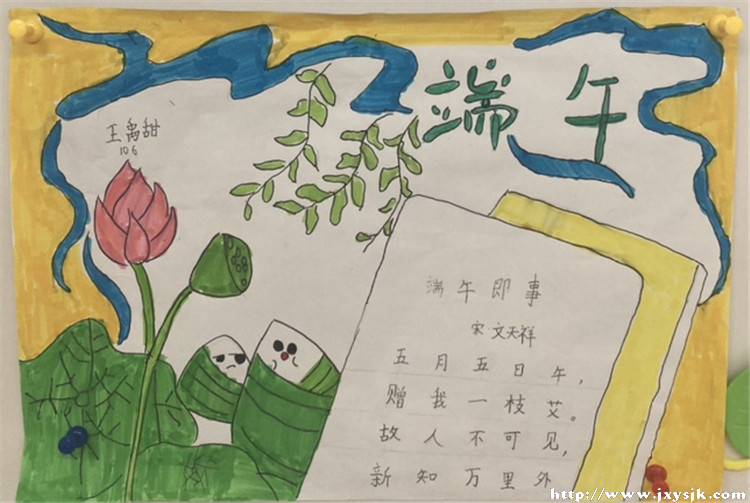 端午
王禹甜
106
端午即事
宋 文天祥
五月五日午，
赠我一枝艾。
故人不可见，
新知万里外
http://www.jxysjk.com